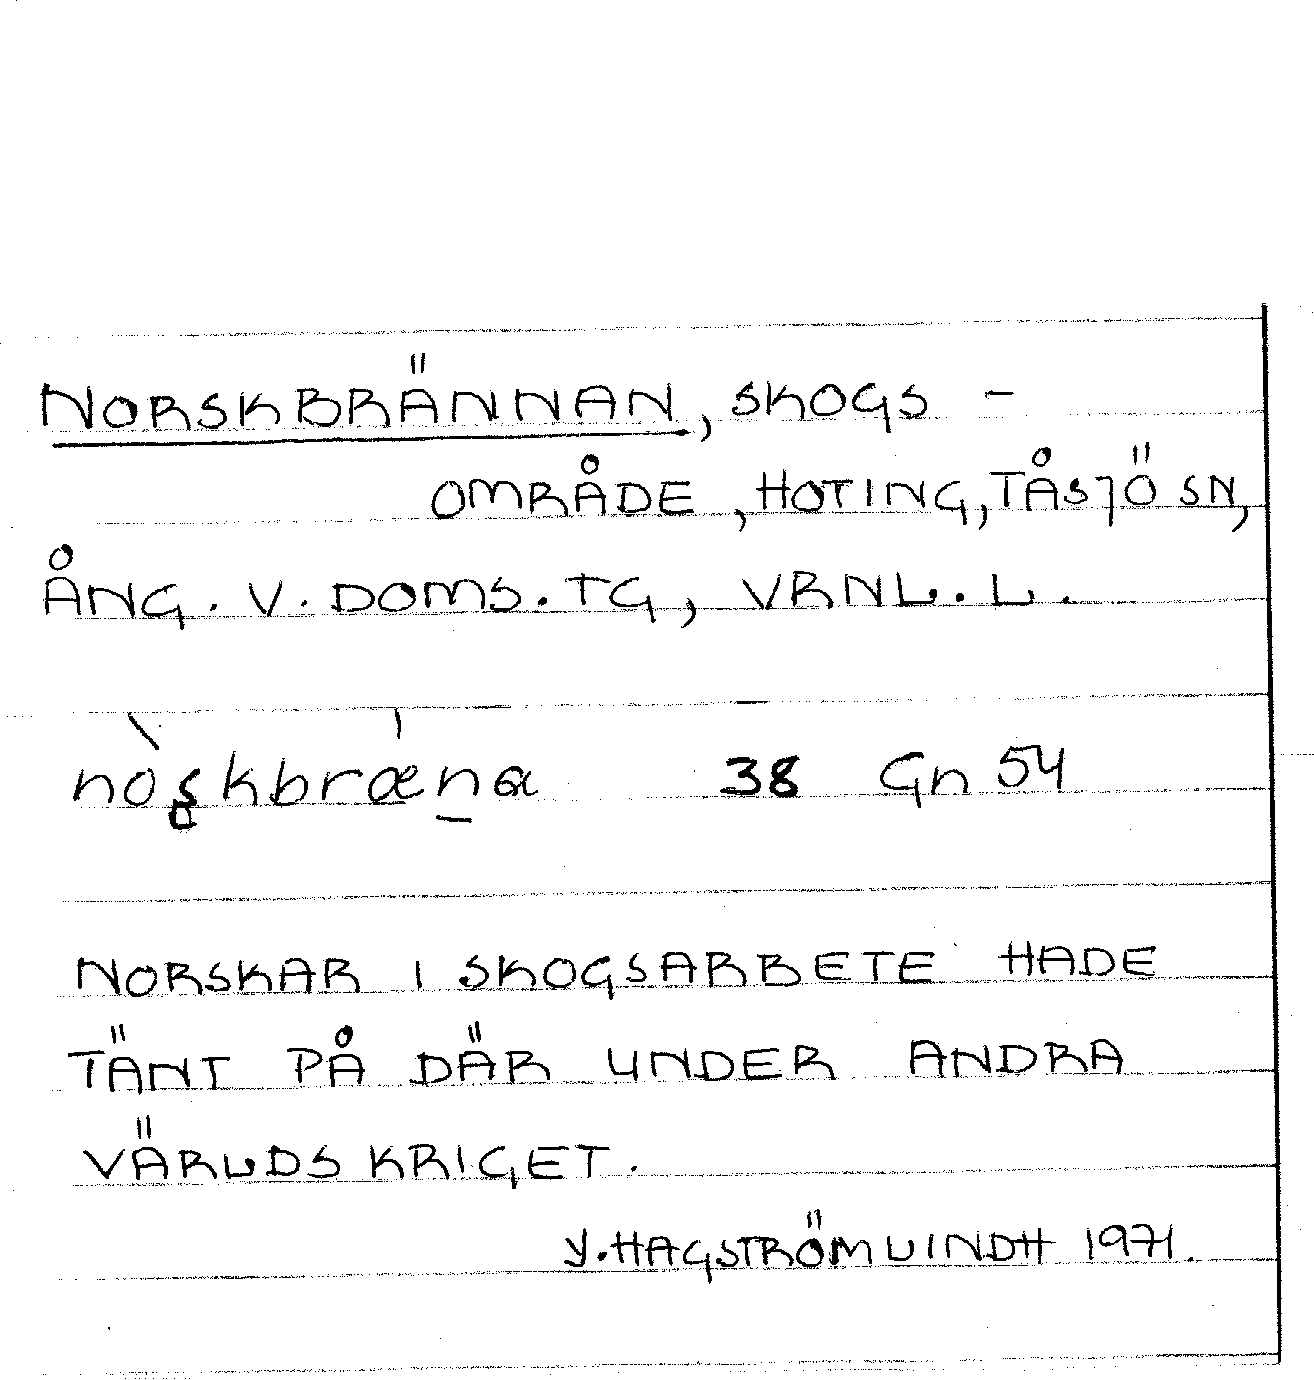 NORSKBRÄNNAN, SKOGS-
OMRÅDE, HOTING, TÅSJÖ SN,
ÅNG. V. DOMS. TG, VRNL. L.
nòʂkbræ̍n̲a 38 Gn 54
NORSKAR I SKOGSARBETE HADE
TÄNT PÅ DÄR UNDER ANDRA
VÄRLDSKRIGET.
Y. HAGSTRÖM LINDH 1971.